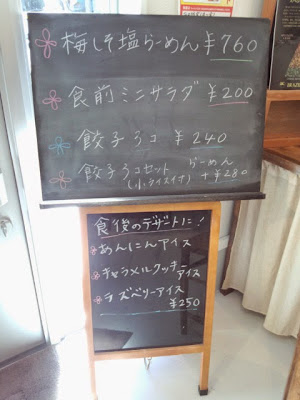 梅しそ塩らーめん ¥760
食前ミニサラダ ¥200
餃子3コ ¥240
餃子3コセット らーめん
(小ライス付) +¥280
食後のデザートに!
あんにんアイス
キャラメルクッキー
アイス
チーズベリーアイス
¥250